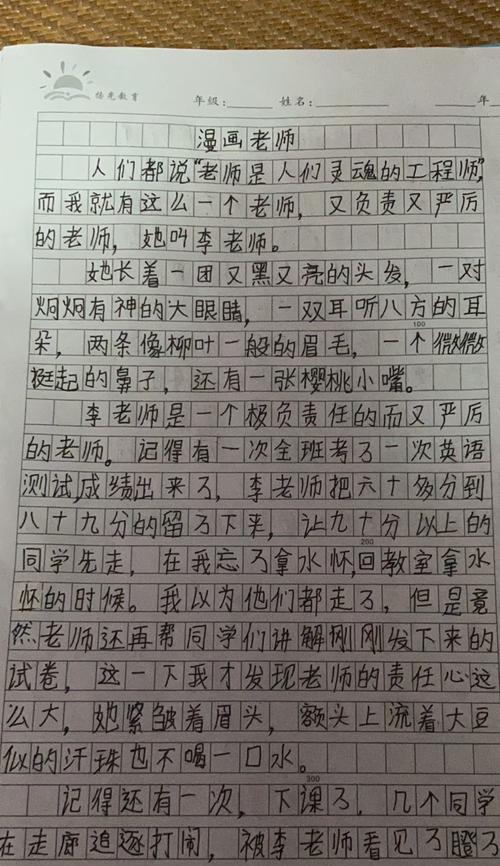 扬光教育
年级：______ 姓名：______ ____年
漫画老师
人们都说"老师是人们灵魂的工程师",
而我就有这么一个老师，又负责又严厉
的老师，她叫李老师。
她长着一团又黑又亮的头发，一对
炯炯有神的大眼睛，一双耳听八方的耳
100
朵，两条像柳叶一般的眉毛，一个微微
挺起的鼻子，还有一张樱桃小嘴。
李老师是一个极负责任的而又严厉
的老师。记得有一次全班考了一次英语
测试,成绩出来了，李老师把六十多分到
八十九分的留了下来，让九十分以上的
200
同学先走，在我忘了拿水怀,回教室拿水
怀的时候。我以为他们都走了，但是竟
然老师还再帮同学们讲解刚刚发下来的
试卷，这一下我才发现老师的责任心这
么大，她紧皱着眉头，额头上流着大豆
似的汗珠也不喝一口水。
300
记得还有一次，下课了，几个同学
在走廊追逐打闹，被李老师看见了瞪了